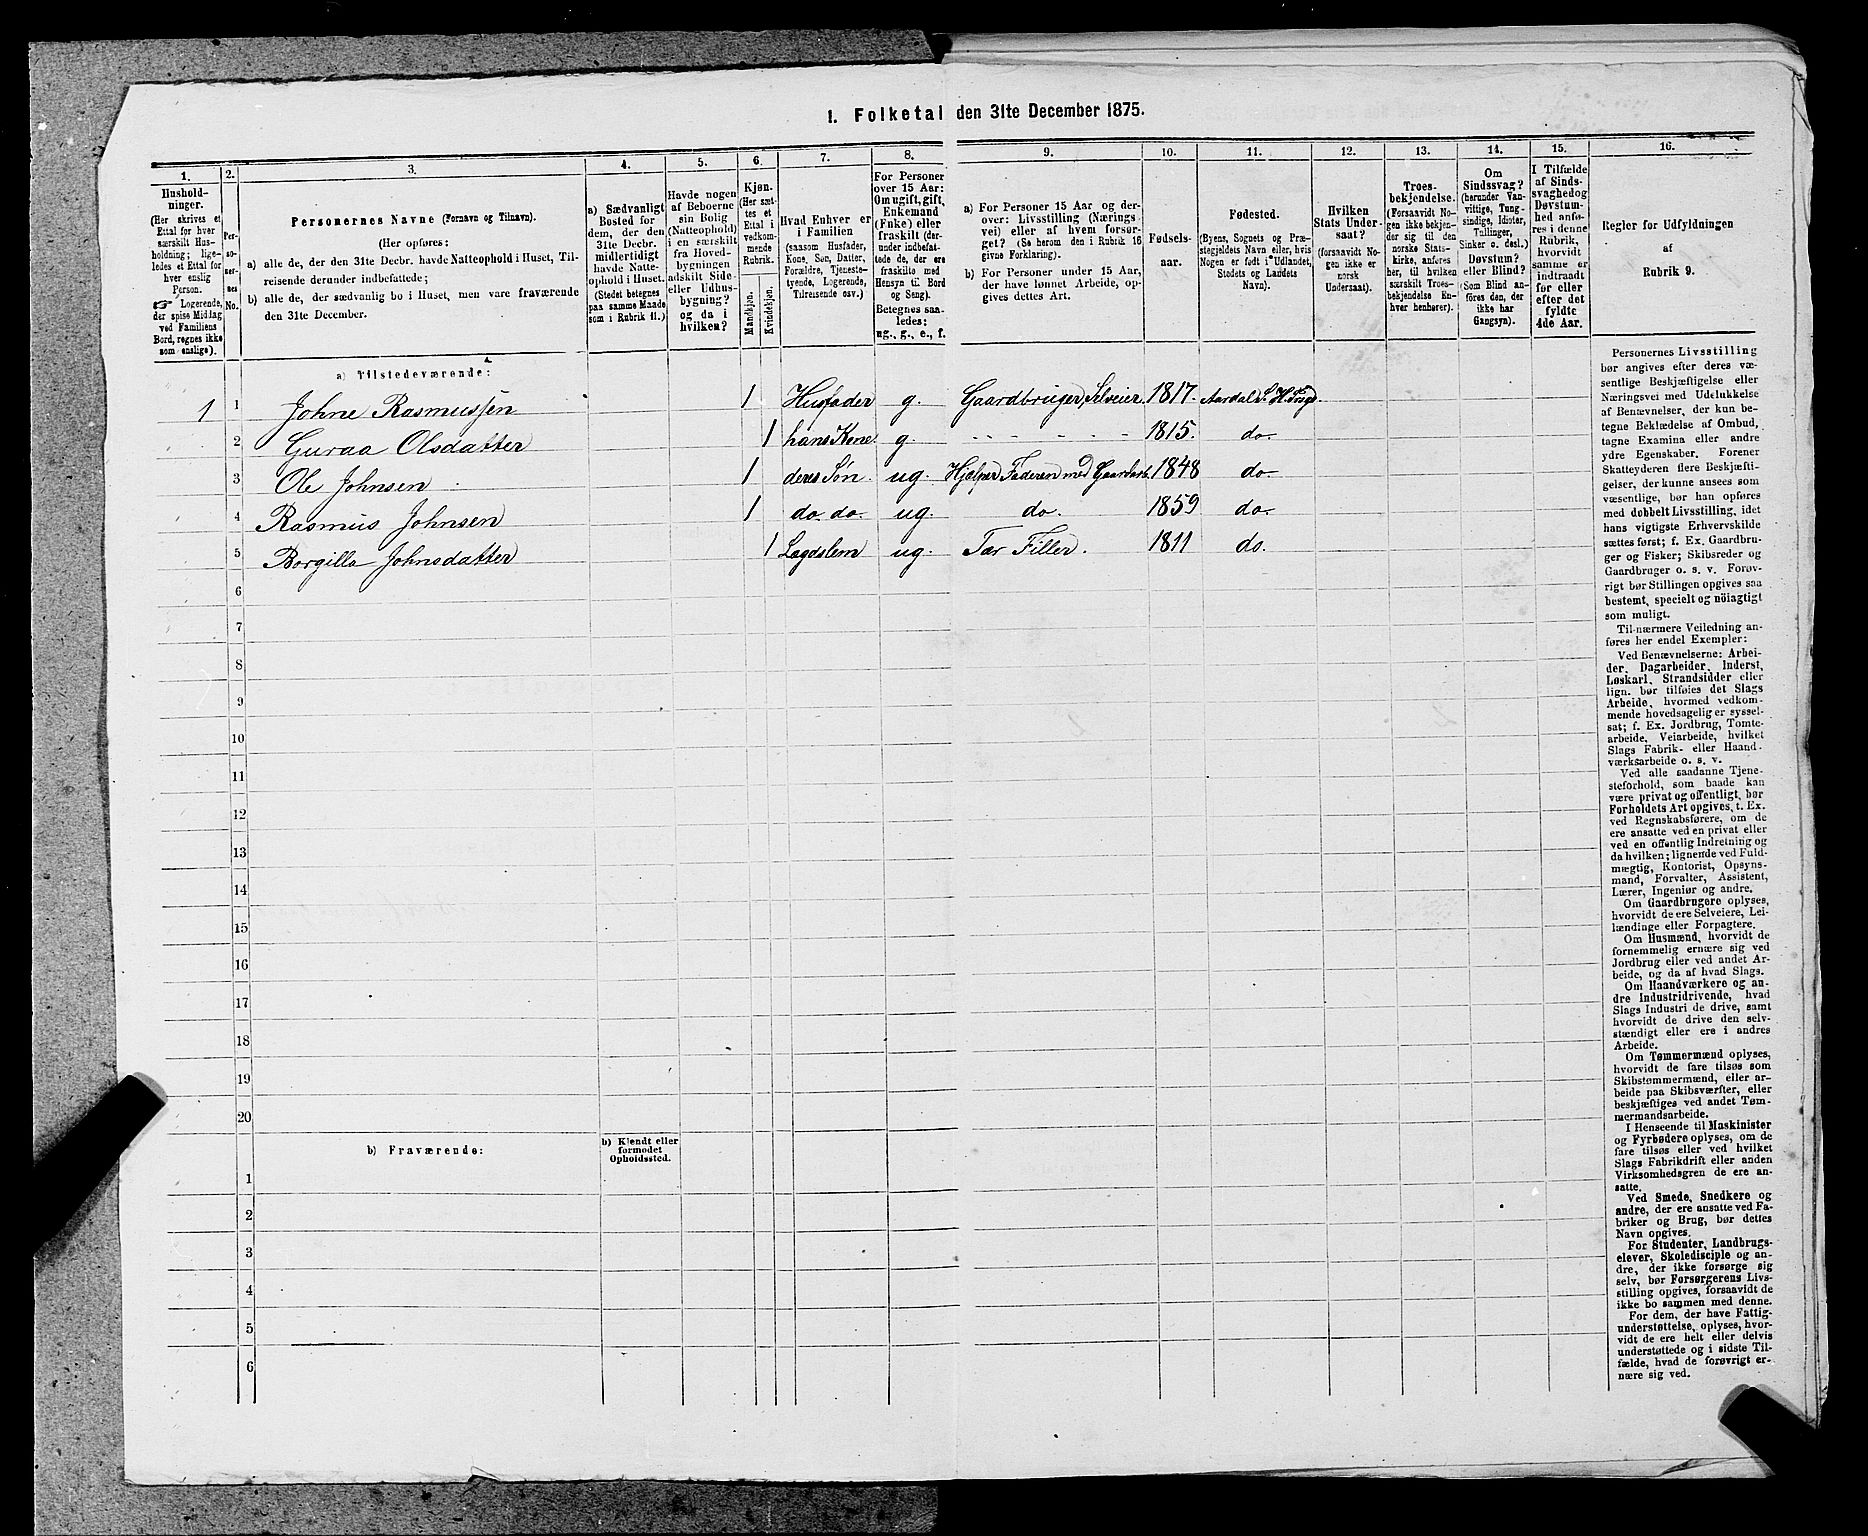 1. Folketal den 31te December 1875.
1. 2. 3. 4. 5. 6. 7. 8. 9. 10. 11. 12. 13. 14. 15. 16.
Hushold-
ninger.
(Her skrives et
Ettal for hver
særskilt Hus-
holdning; lige-
ledes et Ettal for
hver enslig
Person.
☞ Logerende,
der spise Middag
ved Familiens
Bord, regnes ikke
som enslige).
Per-
so-
ner-
nes
No.
Personernes Navne (Fornavn og Tilnavn).
(Her opføres:
a) alle de, der den 31te Decbr. havde Natteophold i Huset, Til-
reisende derunder indbefattede;
b) alle de, der sædvanlig bo i Huset, men vare fraværende
den 31te December.
a) Sædvanligt
Bosted for
dem, der den
31te Decbr.
midlertidigt
havde Natte-
ophold i Huset.
(Stedet betegnes
paa samme Maade
som i Rubrik 11.)
Havde nogen
af Beboerne
sin Bolig
(Natteophold)
i en særskilt
fra Hoved-
bygningen
adskilt Side-
eller Udhus-
bygning?
og da i
hvilken?
Kjøn.
(Her sæt-
tes et
Ettal i
vedkom-
mende
Rubrik.
Mandkjøn.
Kvindekjøn.
Hvad Enhver er
i Familien
(saasom Husfader,
Kone, Søn, Datter,
Forældre, Tjeneste-
tyende, Logerende,
Tilreisende osv.)
For Personer
over 15 Aar:
Om ugift, gift,
Enkemand
(Enke) eller
fraskilt (der-
under indbefat-
tede de, der ere
fraskilte med
Hensyn til Bord
og Seng).
Betegnes saa-
ledes:
ug., g., e., f.
a) For Personer 15 Aar og der-
over: Livsstilling (Nærings-
vei) eller af hvem forsør-
get? (Se herom den i Rubrik 16
givne Forklaring).
b) For Personer under 15 Aar,
der have lønnet Arbeide, op-
gives dettes Art.
Fødsels-
aar.
Fødested.
(Byens, Sognets og Præ-
stegjeldets Navn eller, hvis
Nogen er født i Udlandet,
Stedets og Landets
Navn).
Hvilken
Stats Under-
saat?
(forsaavidt No-
gen ikke er
norsk
Undersaat).
Troes-
bekjendelse.
(Forsaavidt No-
gen ikke bekjen-
der sig til den
norske Stats-
kirke, anføres
her, til hvilken
særskilt Troes-
bekjendelse En-
hver henhører).
Om
Sindssvag?
(herunder Van-
vittige, Tung-
sindige, Idioter,
Tullinger,
Sinker o. desl.)
Døvstum?
eller Blind?
(Som Blind an-
føres den, der
ikke har
Gangsyn).
I Tilfælde
af Sinds-
svaghed og
Døvstum-
hed anfø-
res i denne
Rubrik,
hvorvidt
samme er
indtraadt
før eller
efter det
fyldte
4de Aar.
Regler for Udfyldningen
af
Rubrik 9.
a) Tilstedeværende:
1 1 Johne Rasmussen 1 Husfader g. Gaardbruger, Selveier. 1817. Aardal S. H.
2 Guraa Olsdatter 1 hans Kone. g. - - - - - - 1815. do.
3 Ole Johnsen 1 deres Søn. ug. Hjelper Faderen med 1848 do
4 Rasmus Johnsen 1 do. do. ug. do. 1859 do.
5 Borgilla Johnsdatter 1 Lægdslem ug. 1811 do.
6
7
8
9
10
11
12
13
14
15
16
17
18
19
20
b) Fraværende:
b) Kjendt eller
formodet
Opholdssted.
1
2
3
4
5
6
Personernes Livsstilling
bør angives efter deres væ-
sentlige Beskjæftigelse eller
Næringsvei med Udelukkelse
af Benævnelser, der kun be-
tegne Beklædelse af Ombud,
tagne Examina eller andre
ydre Egenskaber. Forener
Skatteyderen flere Beskjæfti-
gelser, der kunne ansees som
væsentlige, bør han opføres
med dobbelt Livsstilling, idet
hans vigtigste Erhvervskilde
sættes først; f. Ex. Gaardbru-
ger og Fisker; Skibsreder og
Gaardbruger o. s. v. Forøv-
rigt bør Stillingen opgives saa
bestemt, specielt og nöiagtigt
som muligt.
Til nærmere Veiledning an-
føres her endel Exempler:
Ved Benævnelserne: Arbei-
der, Dagarbeider, Inderst,
Løskarl, Strandsidder eller
lign. bør tilføies det Slags
Arbeide, hvormed vedkom-
mende hovedsagelig er syssel-
sat; f. Ex. Jordbrug, Tomte-
arbeide, Veiarbeide, hvilket
Slags Fabrik- eller Haand-
værksarbeide o. s. v.
Ved alle saadanne Tjene-
steforhold, som baade kan
være privat og offentligt, bør
Forholdets Art opgives, t. Ex.
ved Regnskabsførere, om de
ere ansatte ved en privat eller
ved en offentlig Indretning og
da hvilken; lignende ved Fuld-
mægtig, Kontorist, Opsyns-
mand, Forvalter, Assistent,
Lærer, Ingeniør og andre.
Om Gaardbrugere oplyses,
hvorvidt de ere Selveiere, Lei-
lændinge eller Forpagtere.
Om Husmænd, hvorvidt de
fornemmelig ernære sig ved
Jordbrug eller ved andet Ar-
beide, og da af hvad Slags.
Om Haandværkere og an-
dre Industridrivende, hvad
Slags Industri de drive, samt
hvorvidt de drive den selv-
stændigt eller ere i andres
Arbeide.
Om Tømmermænd oplyses,
hvorvidt de fare tilsøs som
Skibstømmermænd, eller ar-
beide paa Skibsværfter, eller
beskjæftiges ved andet Tøm-
mermandsarbeide.
I Henseende til Maskinister
og Fyrbødere oplyses, om de
fare tilsøs eller ved hvilket
Slags Fabrikdrift eller anden
Virksomhedsgren de ere an-
satte.
Ved Smede, Snedkere og
andre, der ere ansatte ved Fa-
briker og Brug, bør dettes
Navn opgives.
For Studenter, Landbrugs-
elever, Skoledisciple og an-
dre, der ikke forsørge sig
selv, bør Forsørgerens Livs-
stilling opgives, forsaavidt de
ikke bo sammen med denne.
For dem, der have Fattig-
understøttelse, oplyses, hvor-
vidt de ere helt eller delvis
understøttede og i sidste Til-
fælde, hvad de forøvrigt er-
nære sig ved.